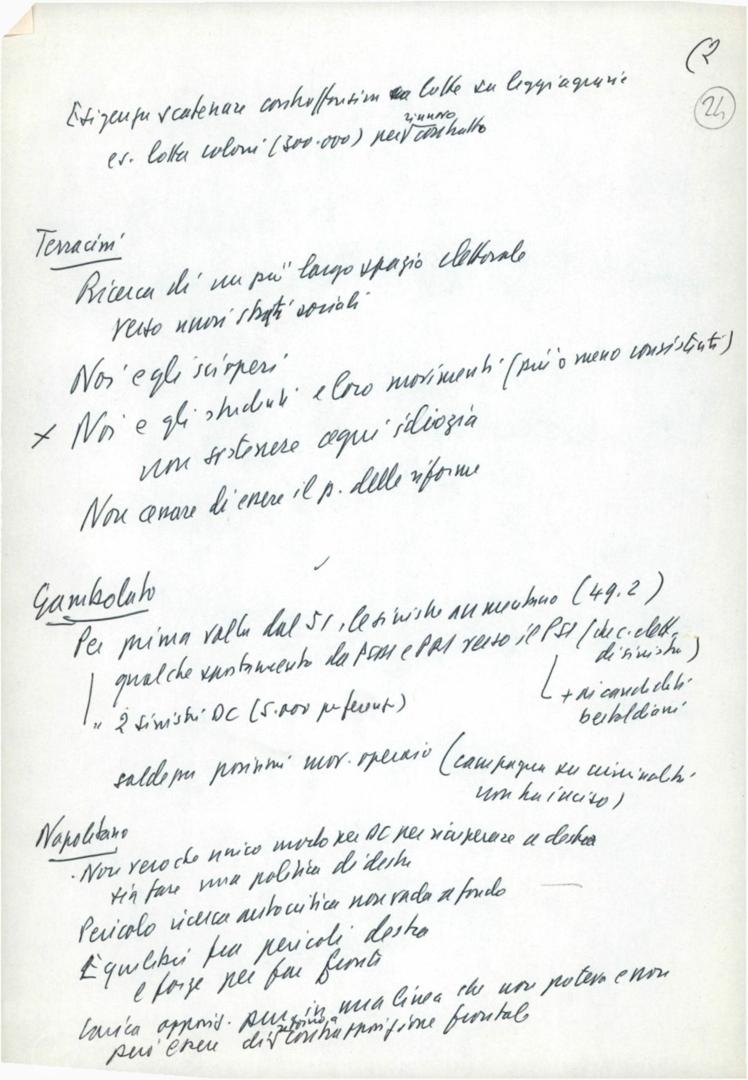 (2
24
Esigenza scatenare controffensiva lotte su leggi agrarie
es. lotta coloni (300.000) per rinnovo contratto
Terracini
Ricerca di un più largo spazio elettorale
verso nuovi strati sociali
Noi e gli scioperi
x Noi e gli studenti e loro movimenti (più o meno consistenti)
non sostenere ogni idiozia
Non cessare di essere il p. delle riforme
Gambolato
Per prima volta dal 51, le sinistre aumentano (49.2)
qualche spostamento da PSDI e PRI verso il PSI (
di sinistra)
+ ri candidati
bertoldiani
" 2 sinistri DC (5.000 preferenze)
saldezza posizioni mov. operaio (campagna su criminalità
non ha inciso)
Napolitano
. Non vero che unico modo per DC per recuperare a destra
sia fare una politica di destra
Pericolo ricerca autocritica non vada a fondo
Equilibri fra pericoli destra
e forze per far fronte
Carica opposiz. pur in una linea che non poteva e non
può essere di contrapposizione frontale